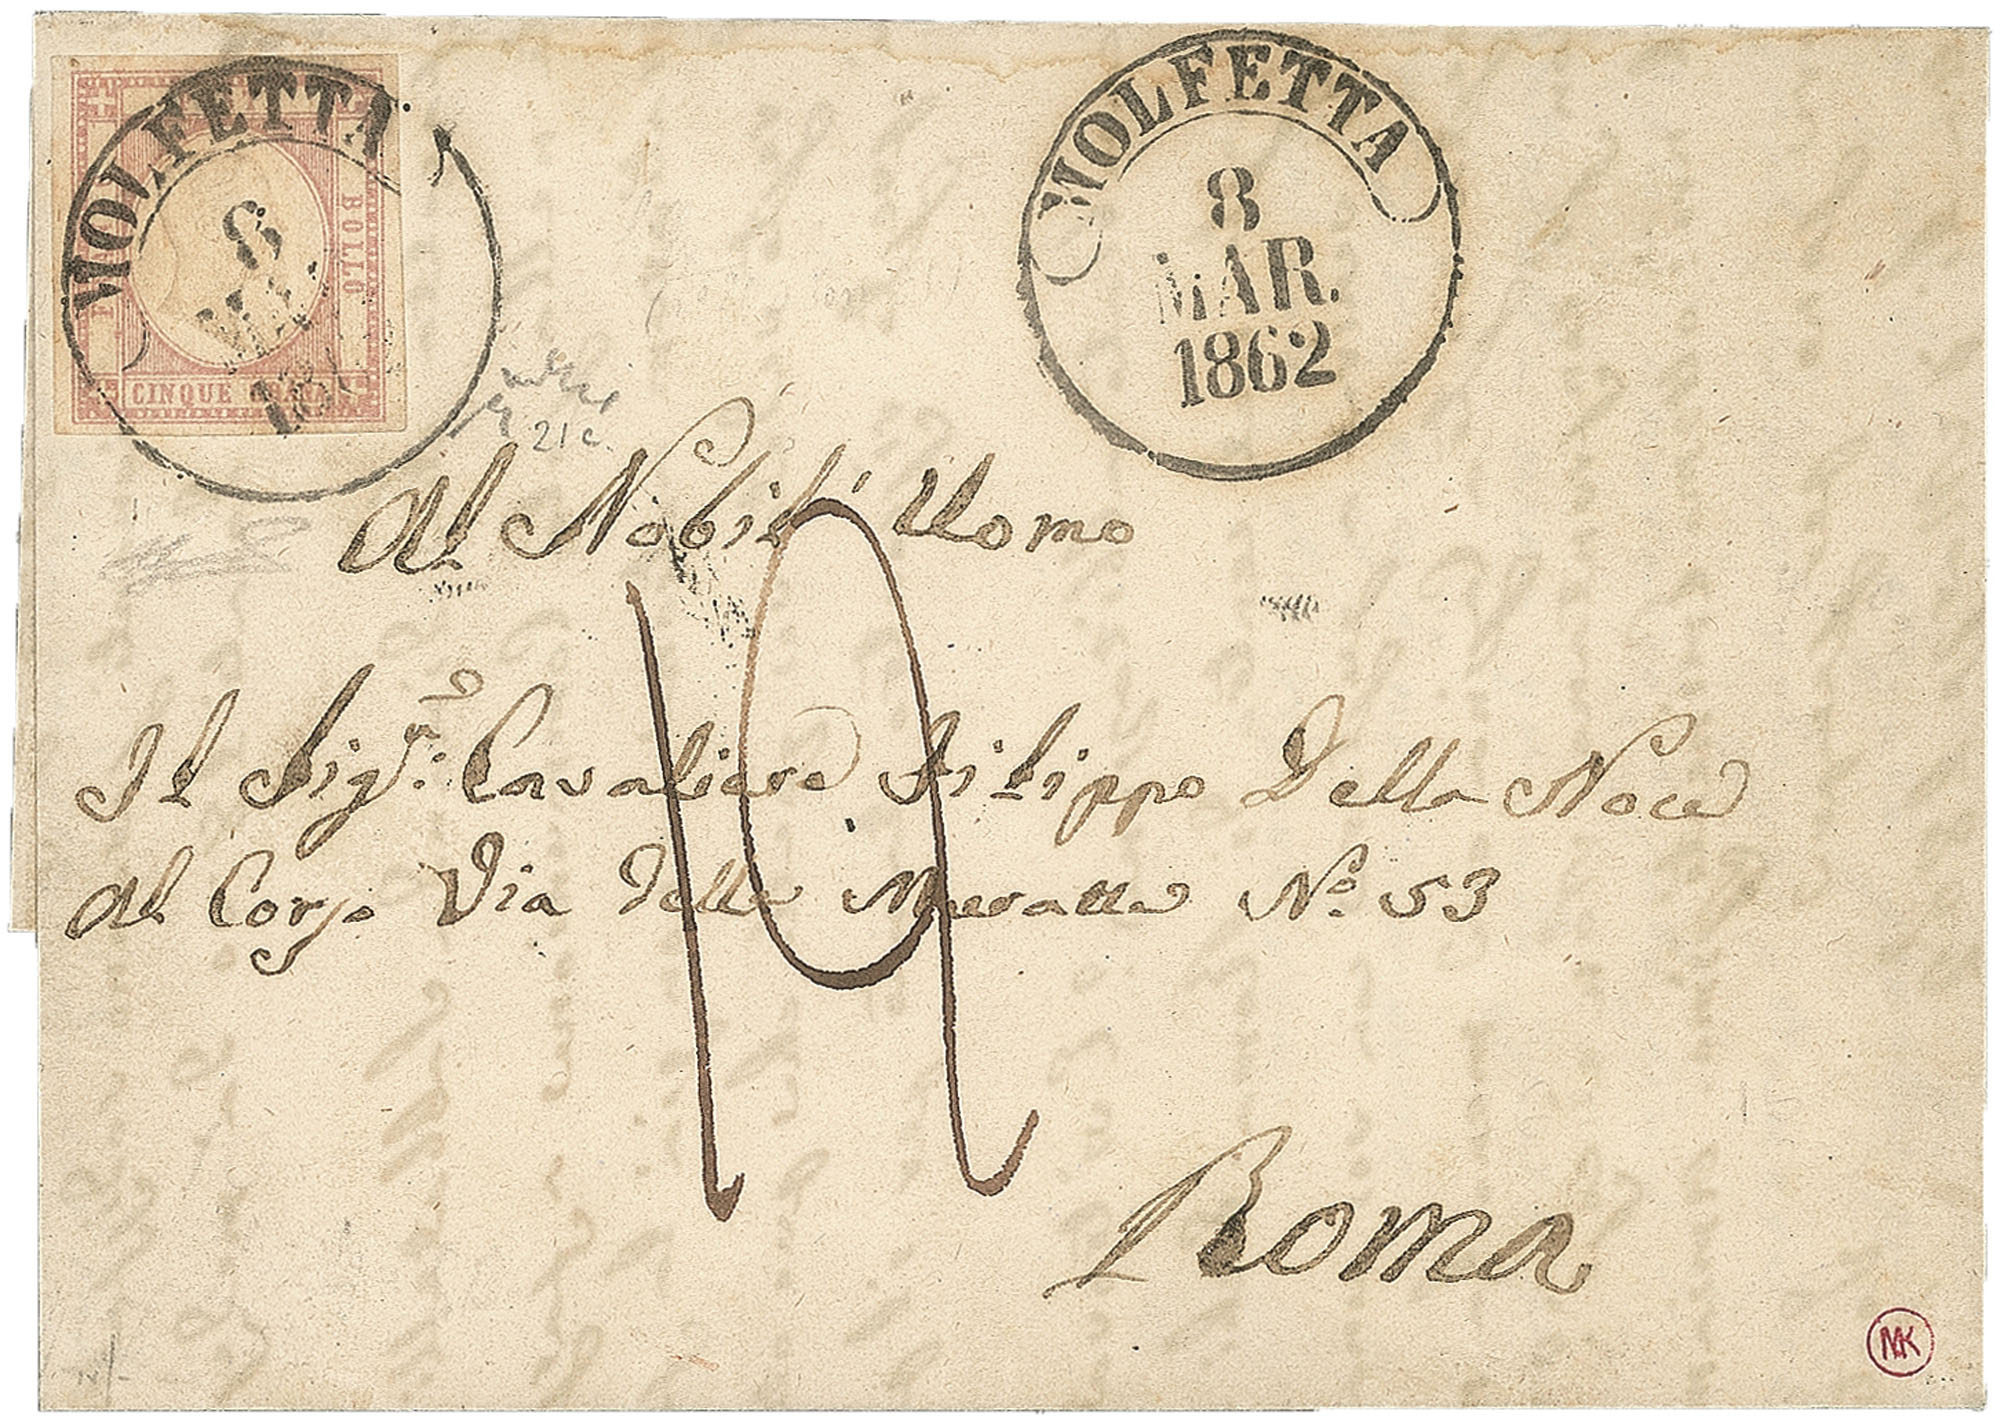 MOLFETTA
8
MA
18
BOLLO
CINQUE GRANA
MOLFETTA
8
MAR.
1862
21c
Al Nobil' Uomo
19
Il Sigʳ: Cavaliere Filippo Della Noce
Al Corso Via delle Muratte Nº. 53
Roma
MK